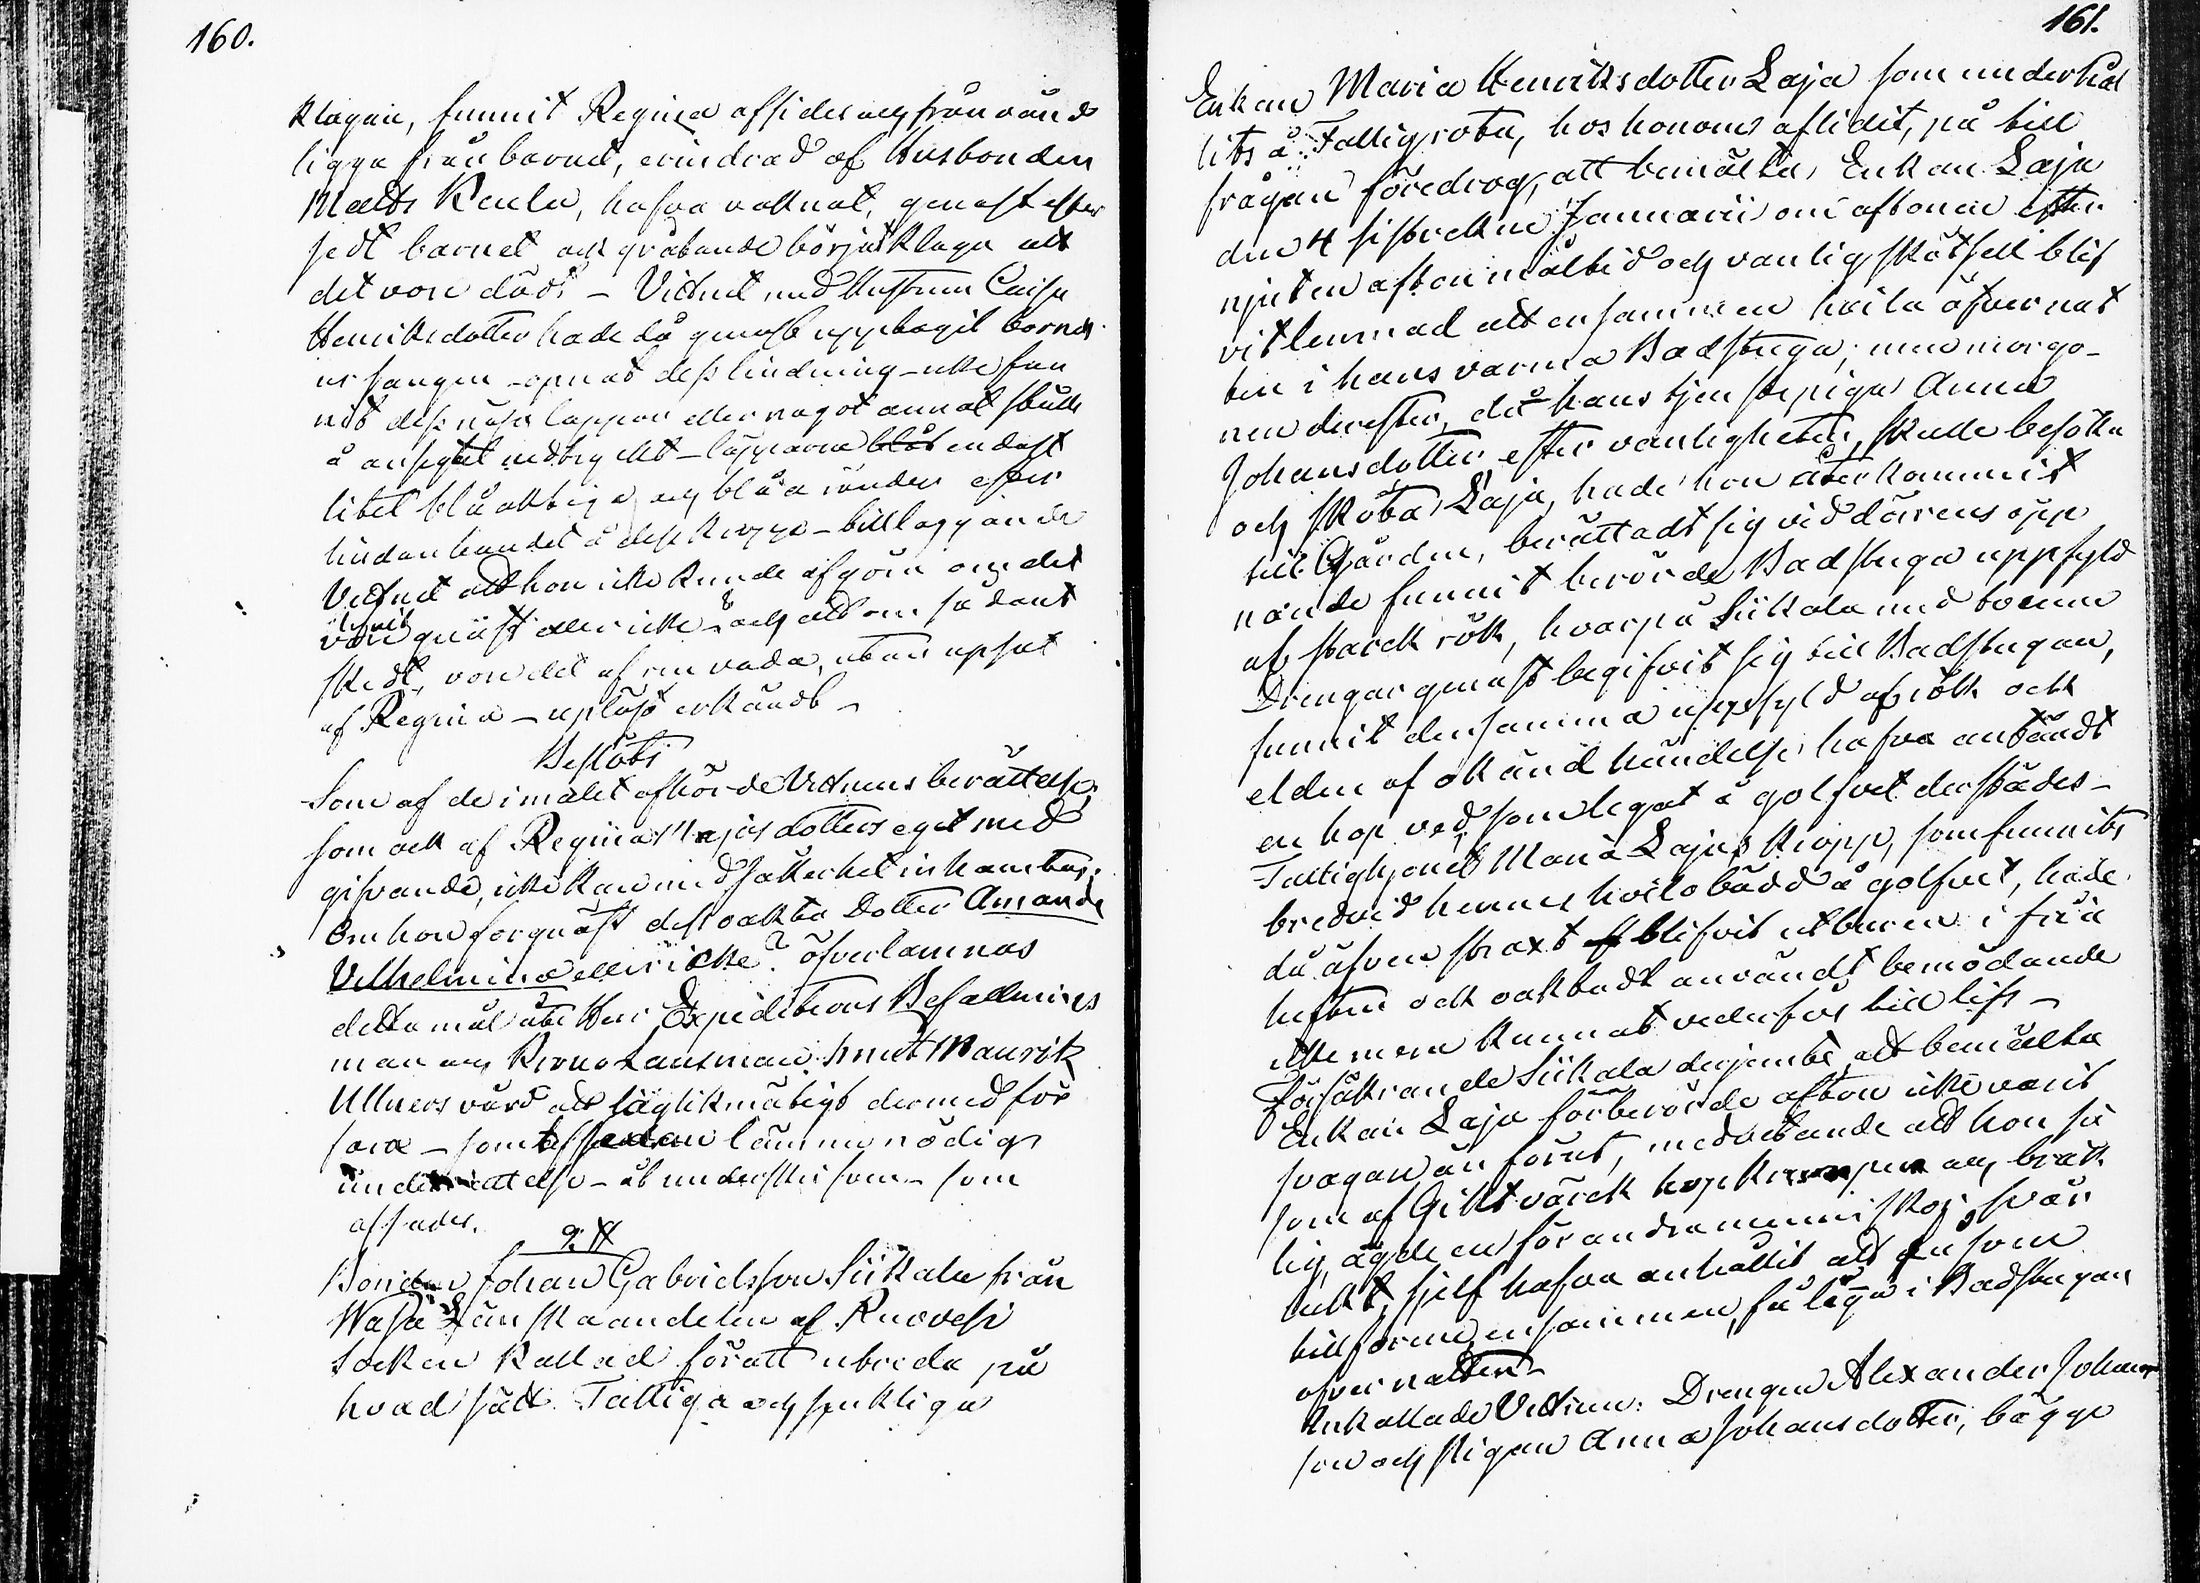 160.
klagan, funnit Regina afsides och frånvänd
ligga från barnet, erindrad af Husbonden
Matts Keula, hafva vaknat, genast efter
sedt barnet och gråtande börjat klaga att
det vore dödt - Vittnet med Hustrun Caisa
Henriksdotter hade då genast upptagit barnet
ur sängen - öpnat dess lindning - icke fun
nit dess näsa läppar eller något annat ställe
å ansigtet nedtryckt - läpparne blåt endast
litet blåaktiga och blåa ränder efter
lindan bandet å dess kropp - tilläggande
Vittnet att hon icke kunde afgöra om det
blifvit
vore qväft eller icke - och att om sådant
skedt, vore det af ren vada, utan upsåt
af Regina - upläst erkändt -
Beslöts
Som af de i målet afhörde Vittnens berättelse,
som ock af Regina Majasdotters eget med
gifvande, icke kan med säkerhet inhämtas,
om hon förqväft dess oäkta Dotter Amanda
Vilhelmina eller icke? öfverlämnas
detta mål åt Herr Expeditions Befallnings
man och Krono Länsman Knut Maurik
Ullners vård att laglikmätigt dermed för
fara - samt lämna nödig
underrättelse - åt underskrifven - som
affades.
9. §
Bonden Johan Gabrielsson Siikala från
Wasa Länska andelen af Ruovesi
Socken kallad för att utreda på
hvad sätt Fattiga och sjukliga
161.
Enkan Maria Henriksdotter Laja som underhål
lits å Fattigrota, hos honom aflidit, på till
frågan föredrog, att bemälta Enkan Laja
den 4 sistvekne Januarii om aftonen efter
njuten aftonmåltid och vanlig skötsell blif
vit lemnad att ensammen hvila öfver nat
ten i hans varma Badstuga; men morgo-
nen derefter, då hans tjenstepiga Anna
Johansdotter efter vanligheten, skulle besöka
och sköta Laja, hade hon återkommit
till Gården, berättadt sig vid dörens öpp
nande funnit berörde Badstuga uppfyld
af starck rök, hvarpå Siikala med tvenne
Drengar genast begifvit sig till Badstugan,
funnit densamma uppfyld af rök och
elden af okänd händelse hafva antändt
en hop ved, som legat å golfvet derstädes -
Fattighjonet Maria Lajas kropp, som funnits
bredvid hennes hvilobädd å golfvet, hade
då äfven straxt blifvit utburen i fria
luften och oaktadt användt bemödande
icke mera kunnat vederfås till lifs -
Försäkrande Siikala derjemte att bemälta
Enkan Laja förberörde afton icke varit
svagare än förut, medvetande att hon så
som af Giktvärck hopkrumpen och bräck
lig, ägde en för andra menniskor svår
lukt, sjelf hafva anhållit att få som
tillförene, ensammen, få ligga i Badstugan
öfver natten -
Inkallade Vittnen: Drengen Alexander Johans
son och Pigan Anna Johansdotter, bägge